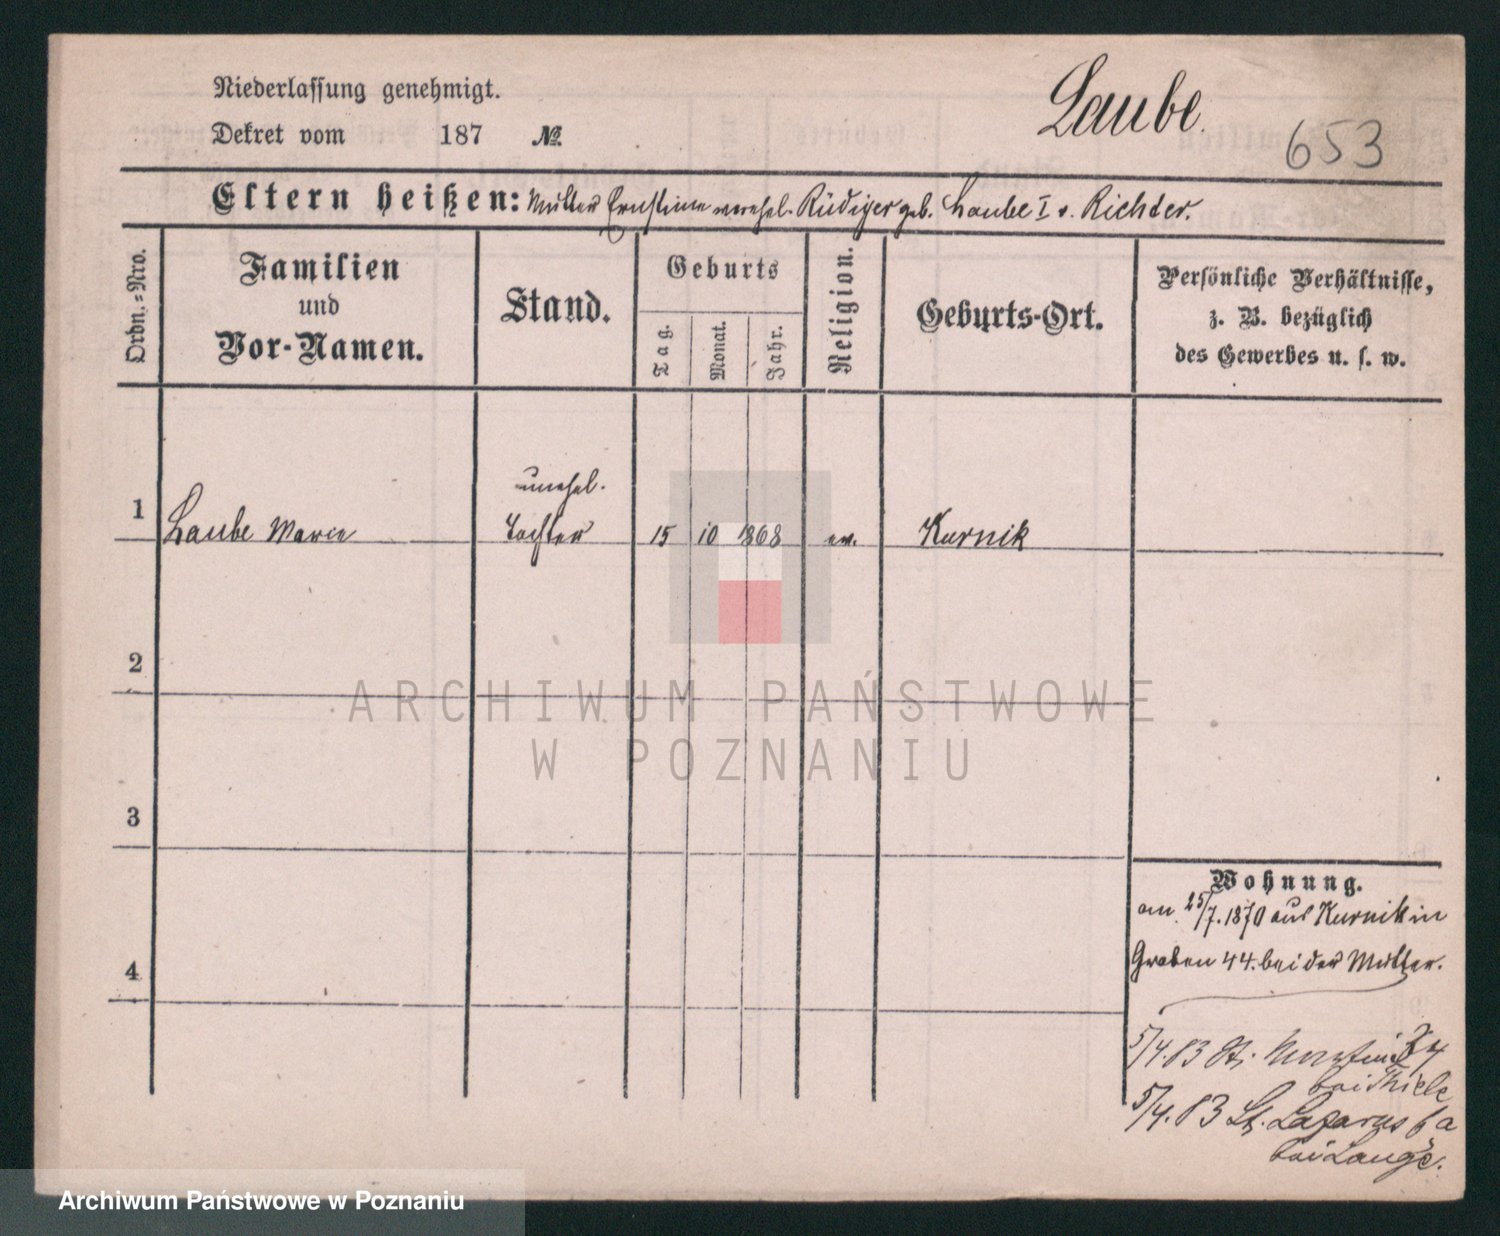 Niederlassung genehmigt.
Laube.
653
Dekret vom 187 №
Eltern heißen: Mutter Ernstine verehel. Rüdiger geb. Laube I v. Richter.
Ordn.-Nro.
Familien
und
Vor-Namen.
Stand.
Geburts
Tag.
Monat.
Jahr.
Religion.
Geburts-Ort.
Persönliche Verhältnisse,
z. B. bezüglich
des Gewerbes u. s. w.
unehel.
1 Laube Marie Tochter 15 10 1868 ev. Kurnik
2
ARCHIWUM PAŃSTWOWE
W POZNANIU
3
Wohnung.
am 25/7. 1870 aus Kurnik in
Graben 44. bei der Mutter.
4
5/4. 83 St. Martin 34
bei Thiele
5/4. 83 St. Lazarus 6a
bei Lange.
Archiwum Państwowe w Poznaniu